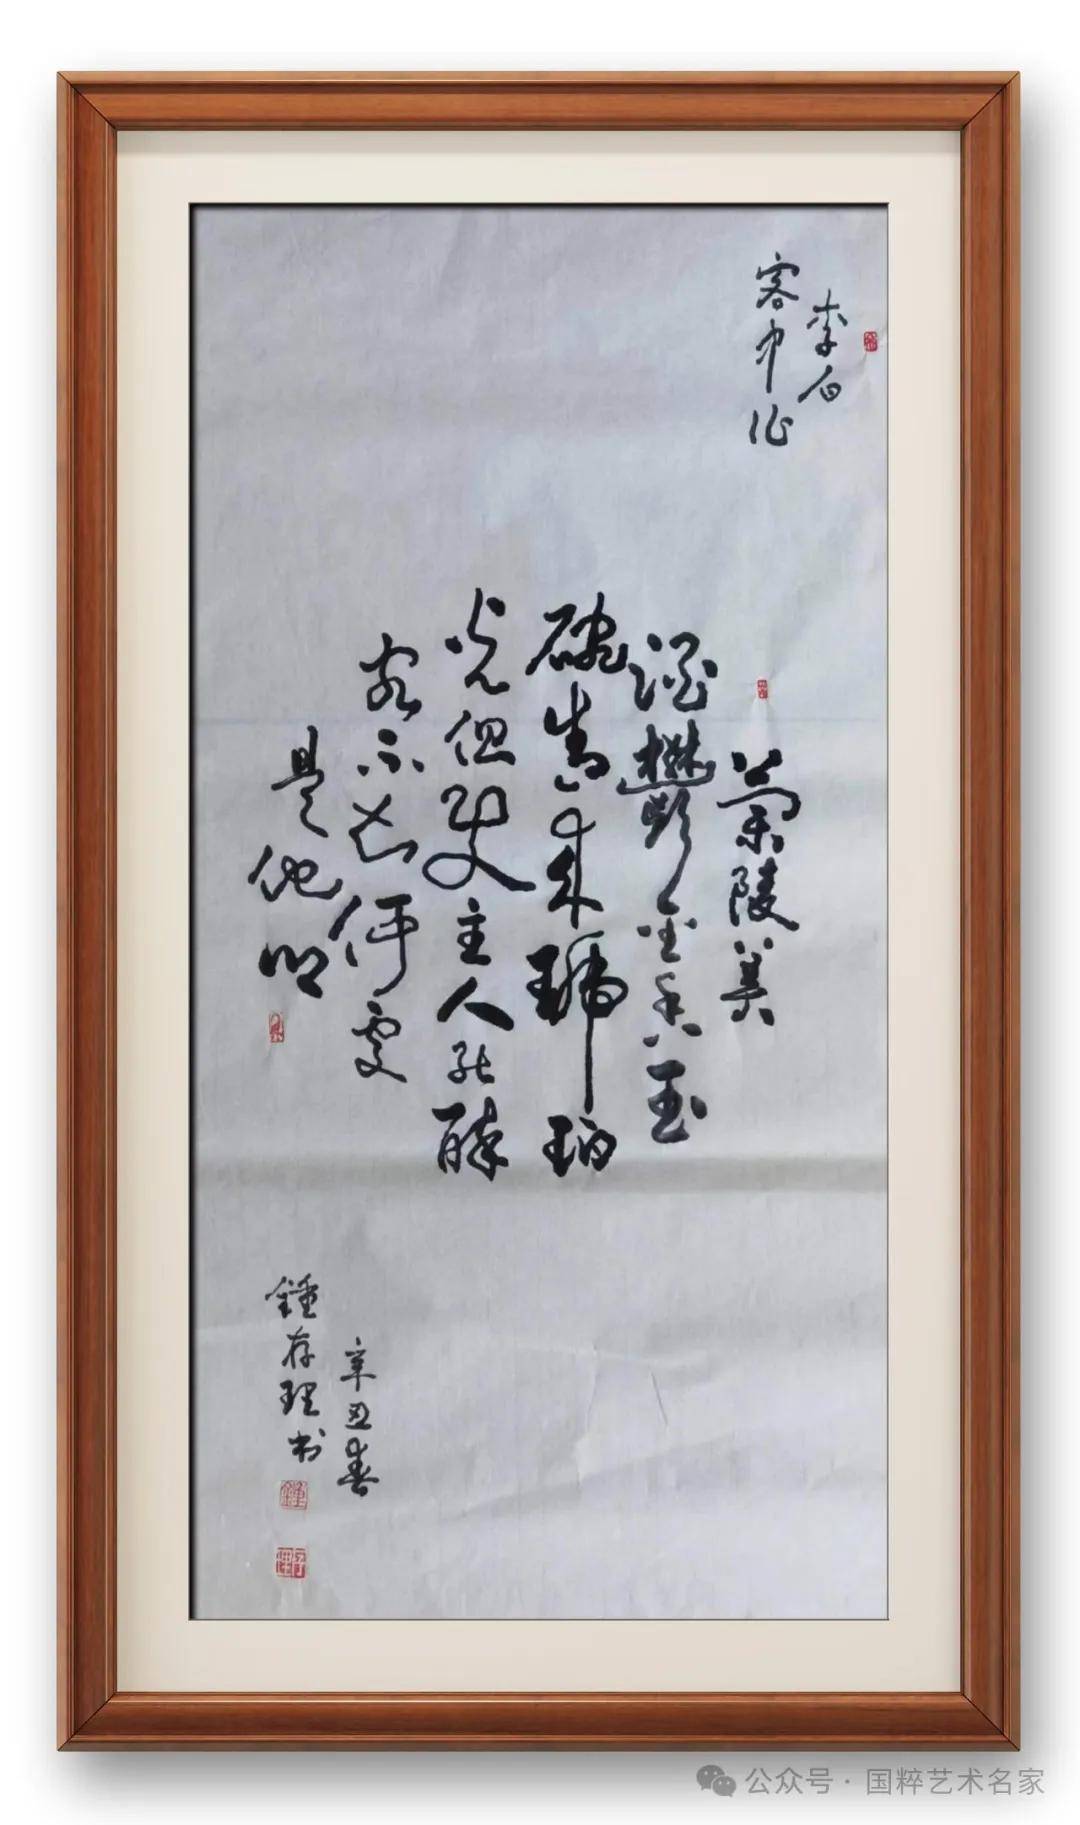 李白
客中作
蘭陵美
酒鬱金香玉
碗盛来琥珀
光但使主人能醉
客不知何處
是他鄉
辛丑春
鍾存理书
公众号·国粹艺术名家